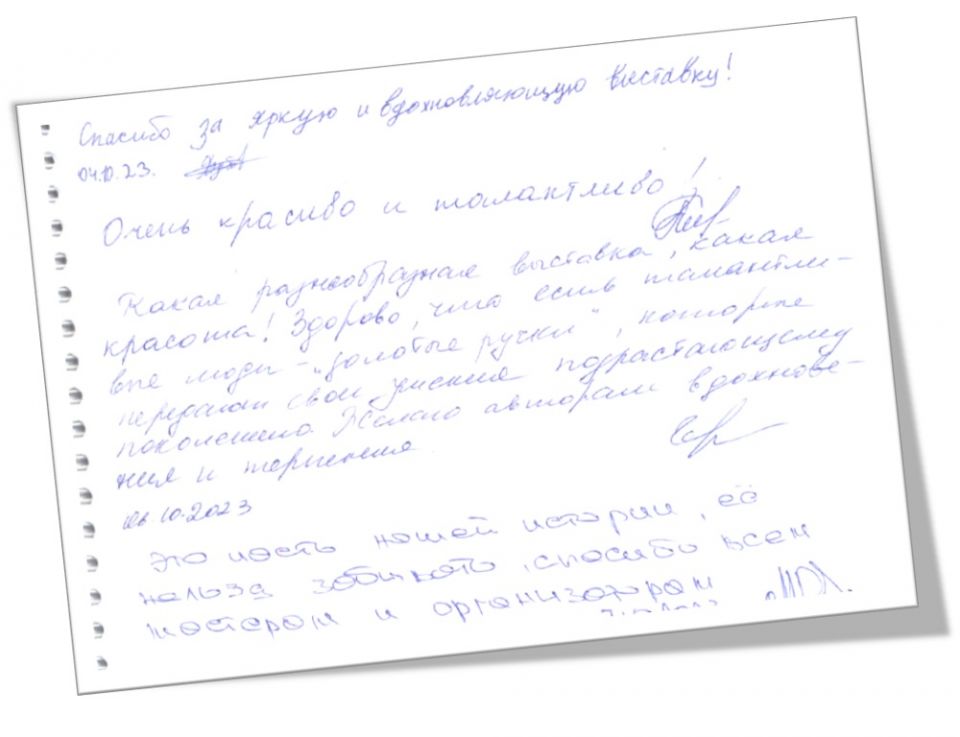 Спасибо за яркую и вдохновляющую выставку!
04.10.23.
Очень красиво и талантливо!
Какая разнообразная выставка, какая
красота! Здорово, что есть талантли-
вые люди - „золотые ручки", которые
передают свои умения подрастающему
поколению. Желаю авторам вдохнове-
ния и терпения.
10.2023
Это часть нашей истории, её
нельзя забывать, спасибо всем
мастерам и организаторам